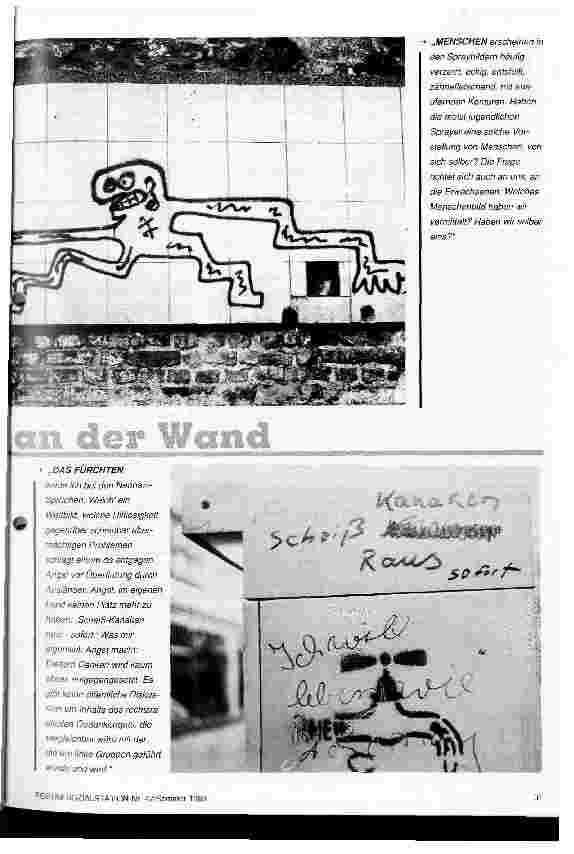 „MENSCHEN erscheinen in
den Spraybildern häufig
verzerrt, eckig, entstellt,
zähnefletschend, mit aus-
ufernden Konturen. Haben
die meist jugendlichen
Sprayer eine solche Vor-
stellung von Menschen, von
sich selber? Die Frage
richtet sich auch an uns, an
die Erwachsenen: Welches
Menschenbild haben wir
vermittelt? Haben wir selber
eins?"
an der Wand
„DAS FÜRCHTEN
ich bei den
Sprüchen. Welch' ein
Weltbild, welche Hilflosigkeit
gegenüber scheinbar über-
mächtigen Problemen
schlägt einem da entgegen.
Angst vor Überflutung durch
Ausländer, Angst, im eigenen
Land keinen Platz mehr zu
haben. „Scheiß-Kanaken
raus - sofort." Was mir
Angst macht:
Diesem Denken wird kaum
etwas entgegengesetzt. Es
gibt keine öffentliche Diskus-
sion um Inhalte des rechtsra-
dikalen Gedankenguts, die
vergleichbar wäre mit der,
die um linke Gruppen geführt
wurde und wird."
Kanaken
Scheiß
Raus
sofort
Ich will
leben
FORUM SOZIALSTATION Nr.